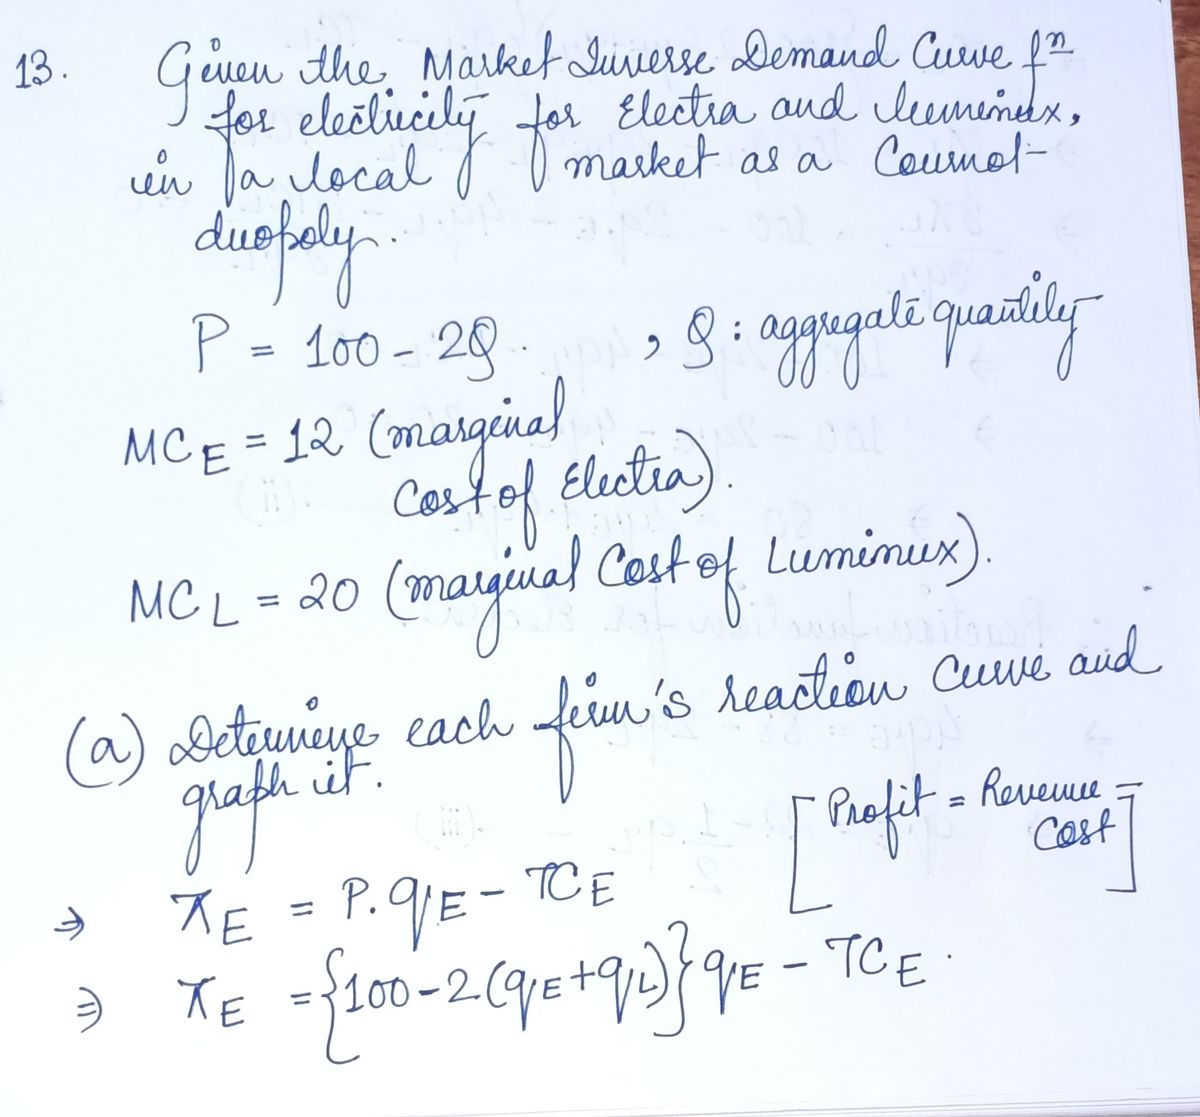 13. Given the Market Inverse Demand Curve fⁿ
for electricity for Electra and Luminux,
in a local market as a Cournot
duopoly.
P = 100 - 2Q. , Q : aggregate quantity
MC_E = 12 (marginal
Cost of Electra).
MC_L = 20 (marginal Cost of Luminux).
(a) Determine each firm's reaction curve and
graph it.
[Profit = Revenue -
Cost]
⇒ π_E = P. q_E - TC_E
⇒ π_E = {100-2(q_E+q_L)} q_E - TC_E.